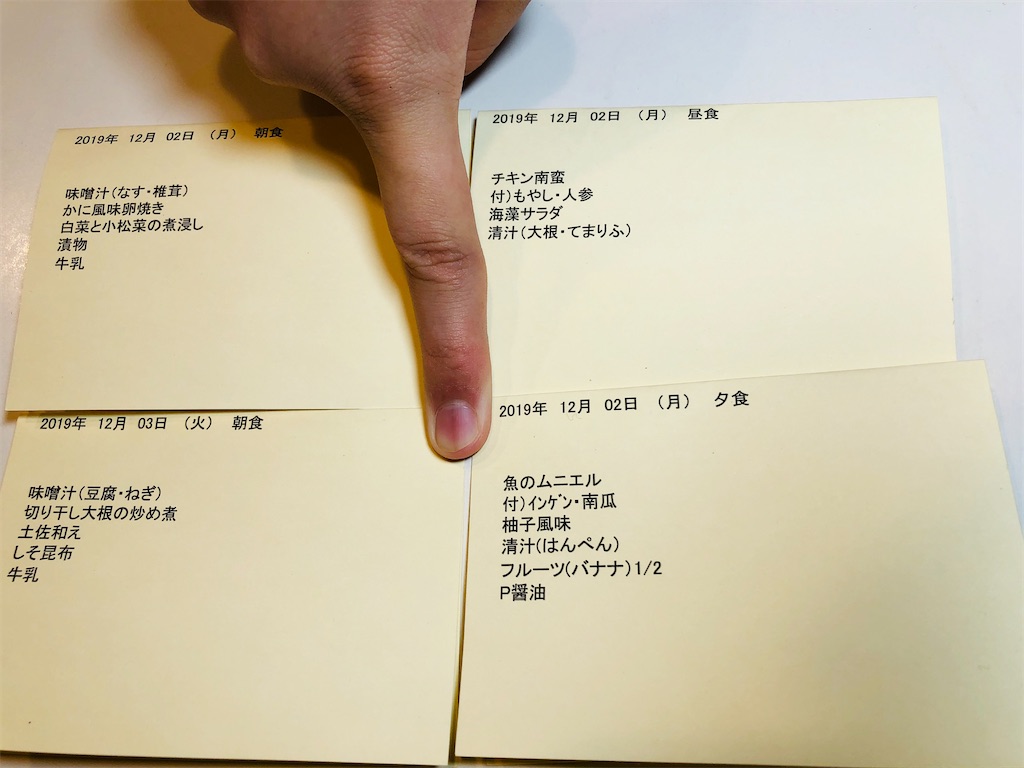 2019年 12月 02日 （月） 朝食
味噌汁（なす・椎茸）
かに風味卵焼き
白菜と小松菜の煮浸し
漬物
牛乳
2019年 12月 02日 （月） 昼食
チキン南蛮
付）もやし・人参
海藻サラダ
清汁（大根・てまりふ）
2019年 12月 03日 （火） 朝食
味噌汁（豆腐・ねぎ）
切り干し大根の炒め煮
土佐和え
しそ昆布
牛乳
2019年 12月 02日 （月） 夕食
魚のムニエル
付）ｲﾝｹﾞﾝ・南瓜
柚子風味
清汁（はんぺん）
フルーツ（バナナ）1/2
P醤油